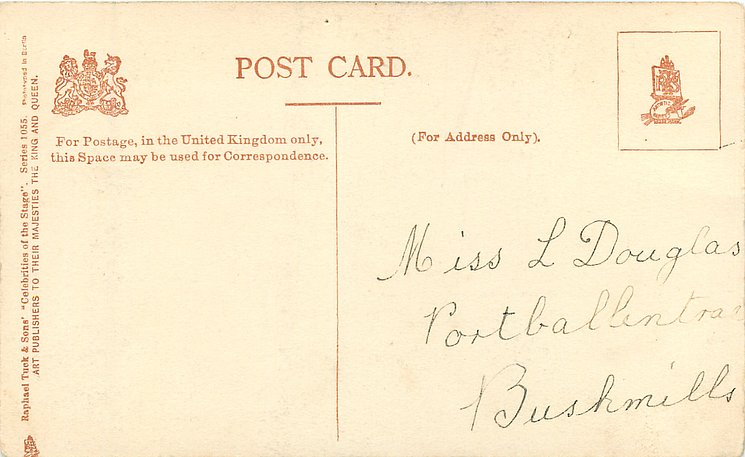 POST CARD.
For Postage, in the United Kingdom only,
this Space may be used for Correspondence.
(For Address Only).
Miss L Douglas
Portballintrae
Bushmills
Raphael Tuck & Sons' "Celebrities of the Stage". Series 1055. in Berlin
ART PUBLISHERS TO THEIR MAJESTIES THE KING AND QUEEN.